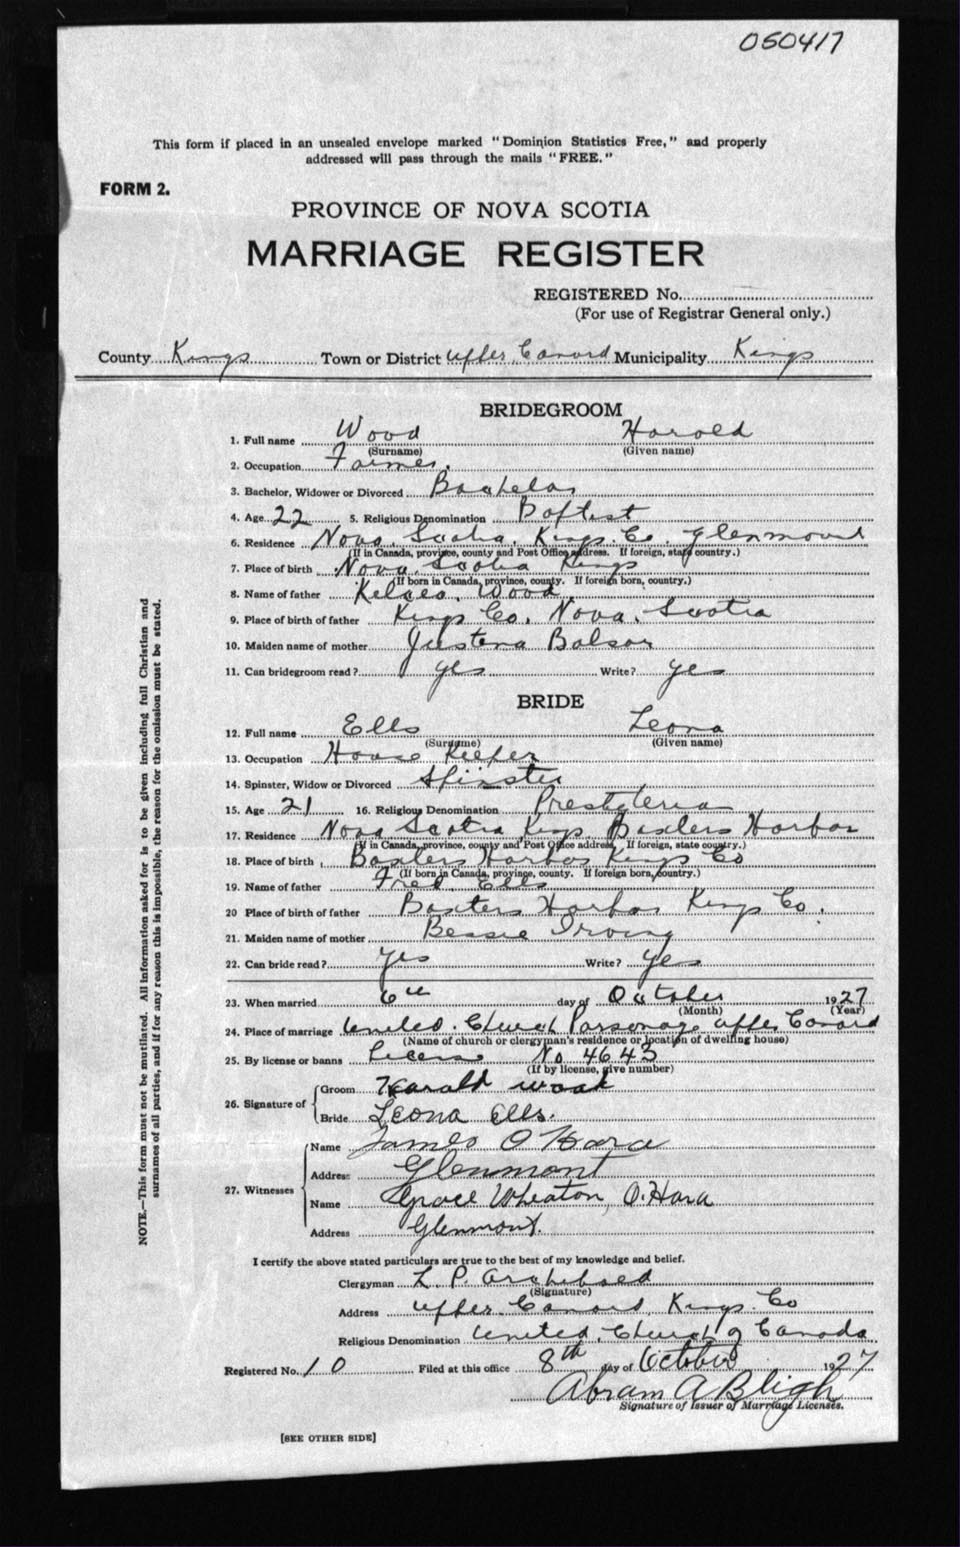 050417
This form if placed in an unsealed envelope marked "Dominion Statistics Free," and properly
addressed will pass through the mails "FREE."
FORM 2.
PROVINCE OF NOVA SCOTIA
MARRIAGE REGISTER
REGISTERED No.
(For use of Registrar General only.)
County Kings Town or District Upper Canard Municipality Kings
BRIDEGROOM
1. Full name Wood Harold
(Surname) (Given name)
2. Occupation Farmer.
3. Bachelor, Widower or Divorced Bachelor
4. Age 22 5. Religious Denomination Baptist
6. Residence Nova Scotia. Kings. Co. Glenmount
(If in Canada, province, county and Post Office address. If foreign, state country.)
7. Place of birth Nova. Scotia Kings
(If born in Canada, province, county. If foreign born, country.)
8. Name of father Wood.
9. Place of birth of father Kings Co. Nova. Scotia
10. Maiden name of mother Justena Balsor
11. Can bridegroom read? yes Write? yes
BRIDE
12. Full name Ells Leona
(Surname) (Given name)
13. Occupation House Keeper
14. Spinster, Widow or Divorced Spinster
15. Age 21 16. Religious Denomination Presbyteria
17. Residence Nova Scotia Kings Baxters Harbor
(If in Canada, province, county and Post Office address, If foreign, state country.)
18. Place of birth Baxters Harbor Kings Co
(If born in Canada, province, county. If foreign born, country.)
19. Name of father Fred Ells
20 Place of birth of father Baxters Harbor Kings Co.
21. Maiden name of mother Bessie Irving
22. Can bride read? yes Write? yes
23. When married 6th day of October 1927
(Month) (Year)
24. Place of marriage United. Church Parsonage Upper Canard
(Name of church or clergyman's residence or location of dwelling house)
25. By license or banns No 4643
(If by license, give number)
26. Signature of Groom Harald Wood
Bride Leona Ells.
27. Witnesses Name James O'Hara
Address Glenmont
Name Grace Wheaton O'Hara
Address Glenmont.
I certify the above stated particulars are true to the best of my knowledge and belief.
Clergyman L. P. Archibald
(Signature)
Address Upper Canard, Kings. Co
Religious Denomination United. Church of Canada.
Registered No. 10 Filed at this office 8th day of October 1927
Abram A Bligh
Signature of Issuer of Marriage Licenses.
[SEE OTHER SIDE]
NOTE.—This form must not be mutilated. All information asked for is to be given including full Christian and
surnames of all parties, and if for any reason this is impossible, the reason for the omission must be stated.